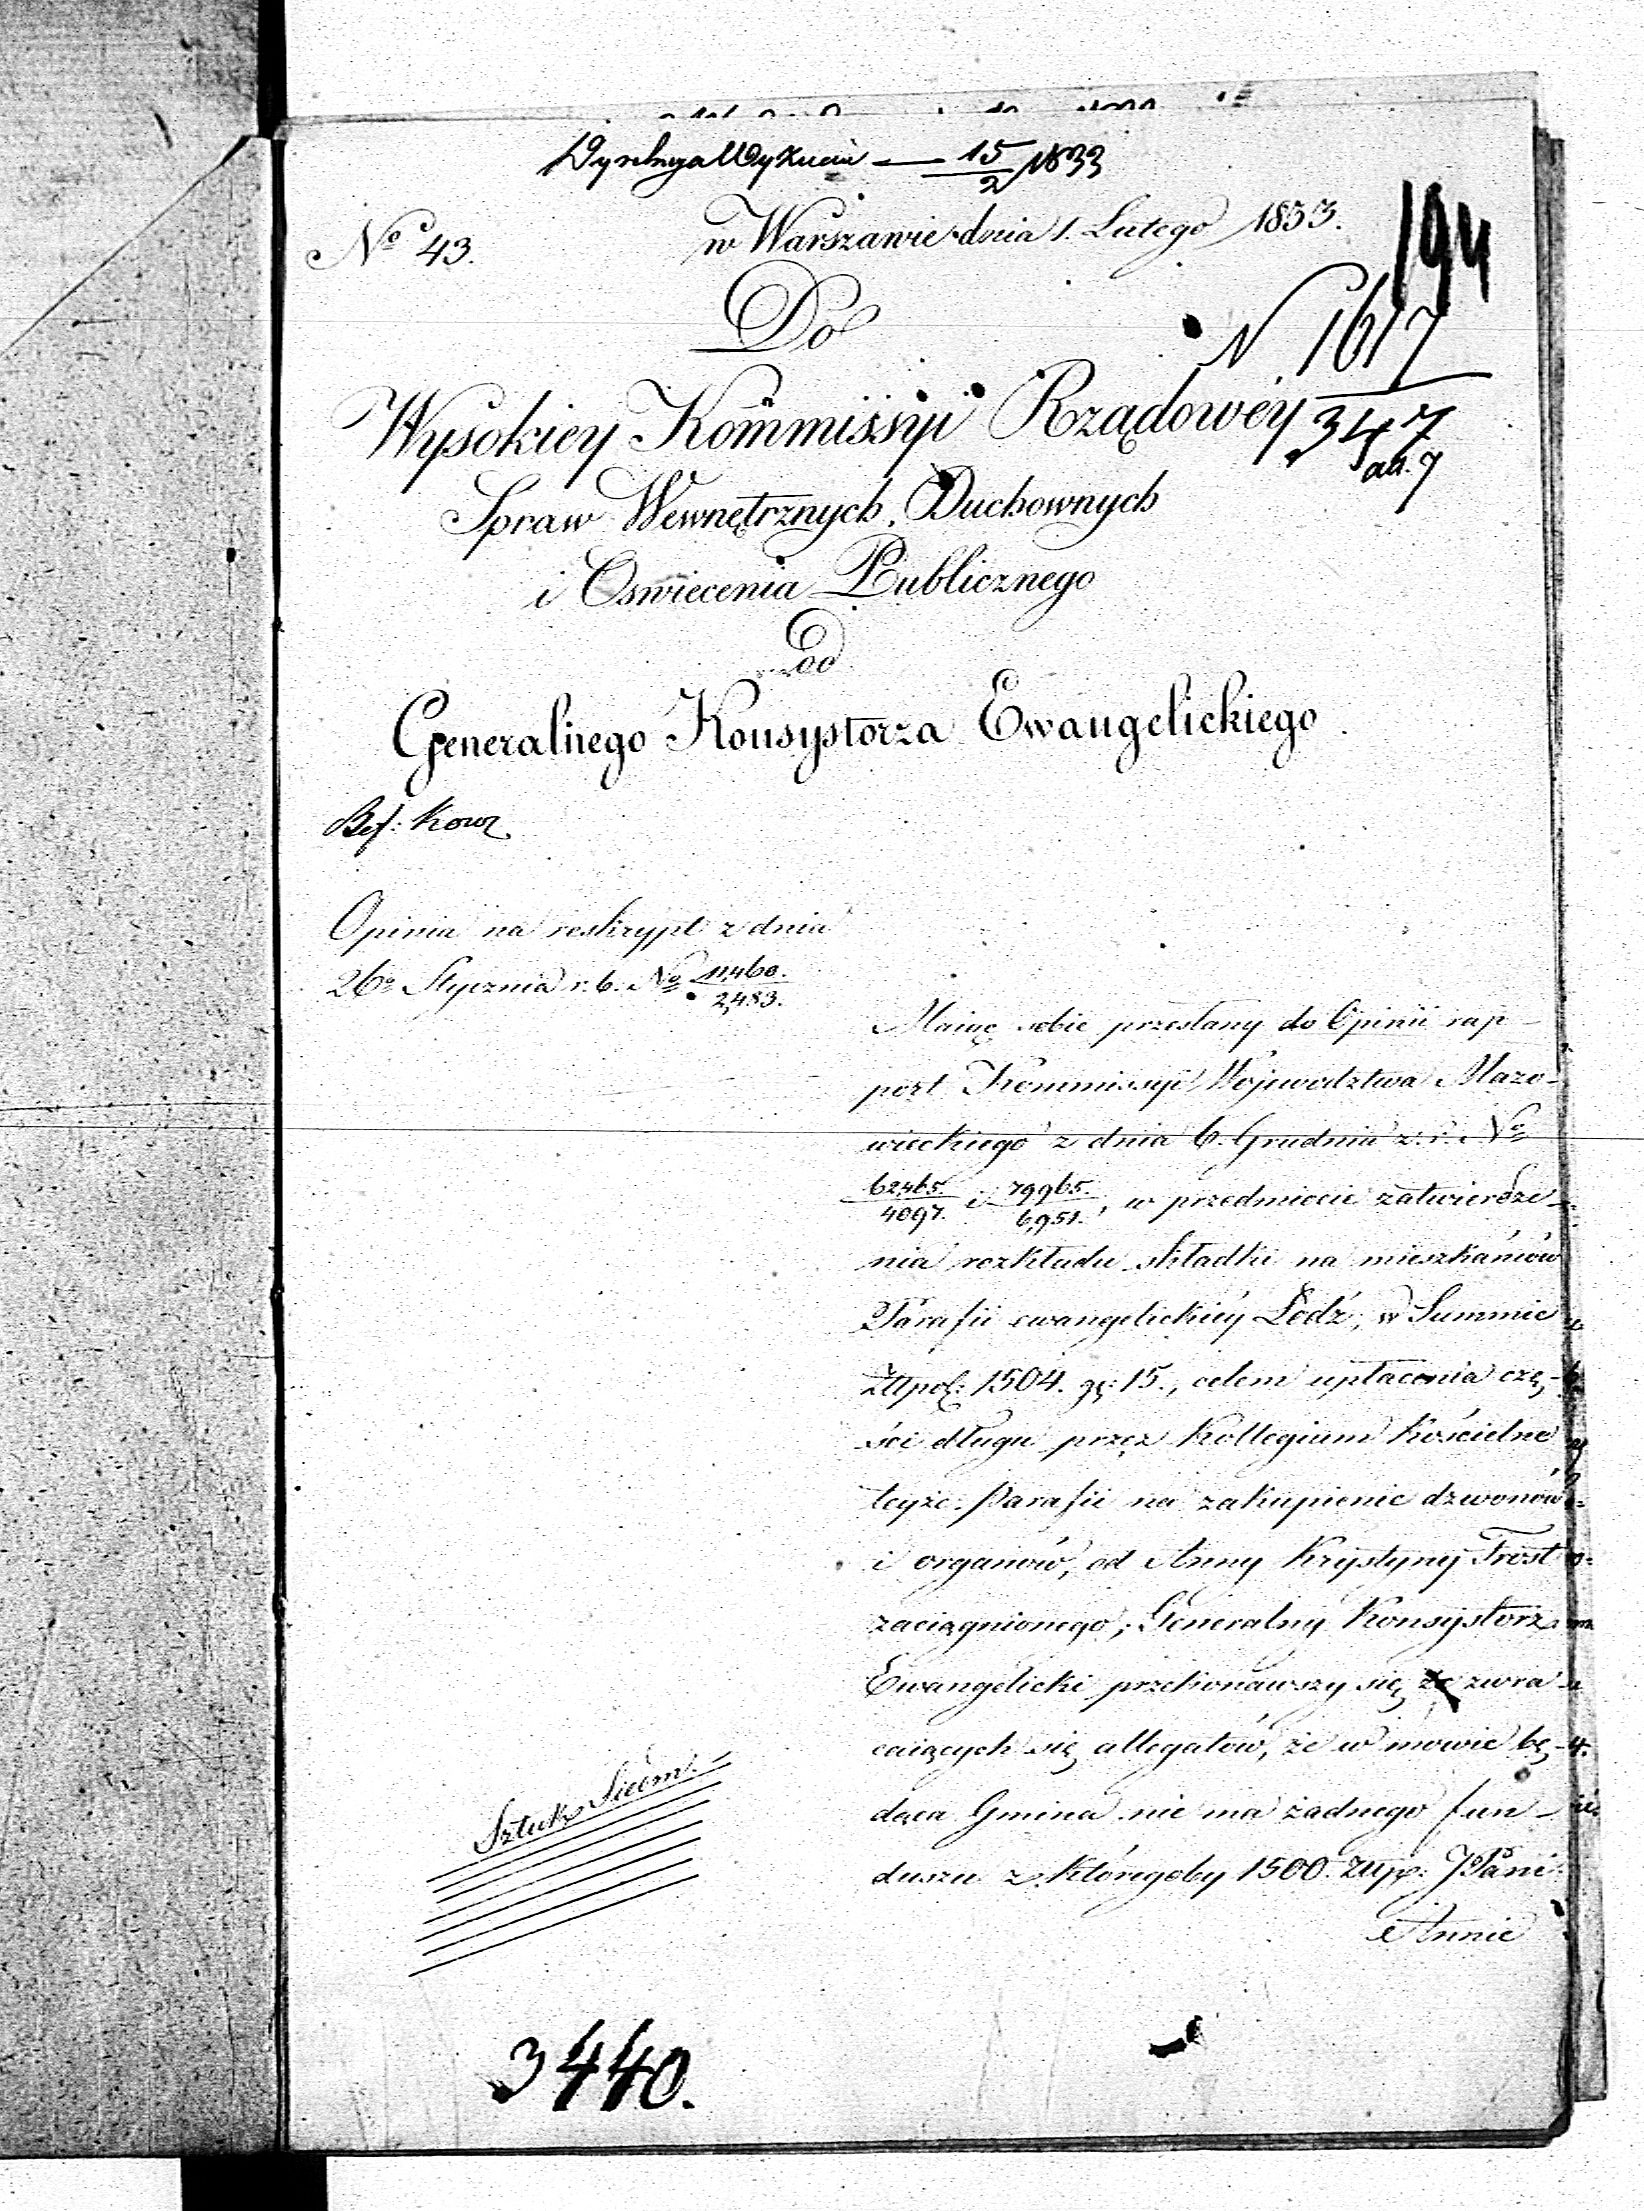 15/2 1833
194
No 43.
w Warszawie dnia 1. Lutego 1833.
Do
N 1617/347
Wysokiey Kommissyi Rządowey
Spraw Wewnętrznych, Duchownych
i Oswiecenia Publicznego
od
Generalnego Konsystorza Ewangelickiego.
Opinia na reskrypt z dnia
26o Stycznia r. b. No 11,460./2,483.
Maiąc sobie przesłany do Opinii rap-
port Kommissyi Województwa Mazo-
wieckiego z dnia 6. Grudnia z. r. No
62,465./4097. i 79,965./6,951., w przedmiocie zatwierdze-
nia rozkładu składki na mieszkańców
Parafii ewangelickiéy Łodź, w Summie
Złłpol: 1504. gr: 15., celem upłacenia czę-
ści długu przez Kollegium Kościelne
teyże Parafii na zakupienie dzwonów
i organów, od Anny Krystyny Trost
zaciągnionego; Generalny Konsystorz
Ewangelicki przekonawszy się ze zwra-
caiących się allegatów, że w mowie bę-
dąca Gmina nie ma żadnego fun-
duszu z któregoby 1500. Złłp: JPani
Annie
Sztuk Siedm.
3440.